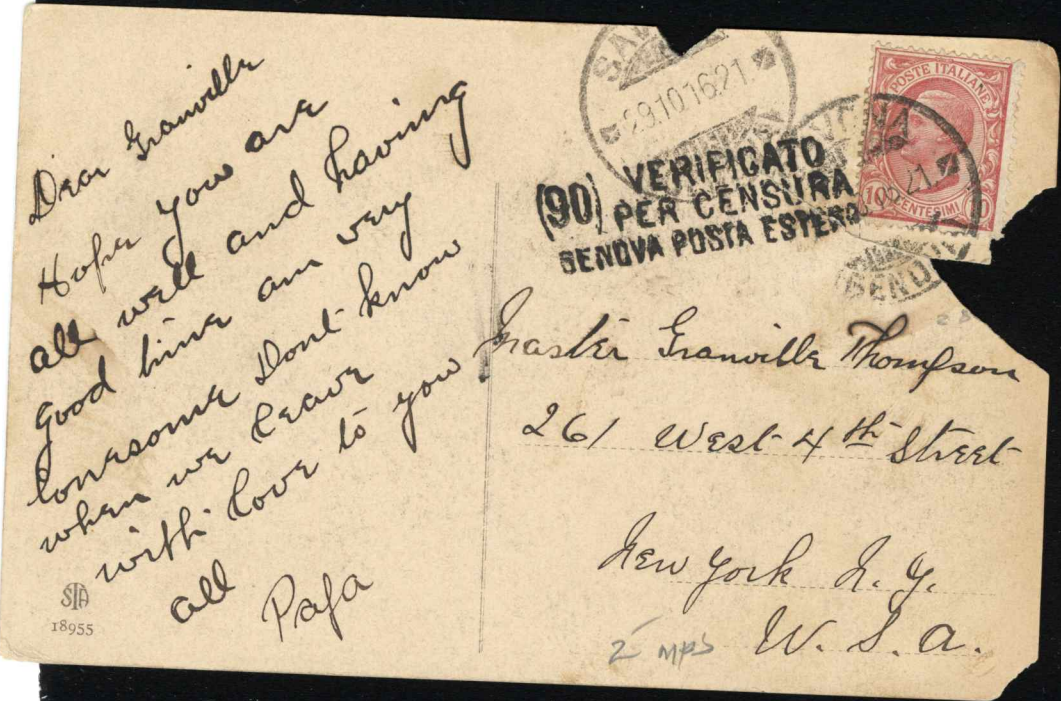 Dear Granville
Hope you are
all well and having
good time am very
lonesome Dont know
when we leave
with love to you
all
Papa
STA
18955
29.10.16.21.
(90) VERIFICATO
PER CENSURA
GENOVA POSTA ESTERO
POSTE ITALIANE
10 CENTESIMI 10
Master Granville Thompson
261 West 4th Street
New York N.Y.
U.S.A.
2 MPS